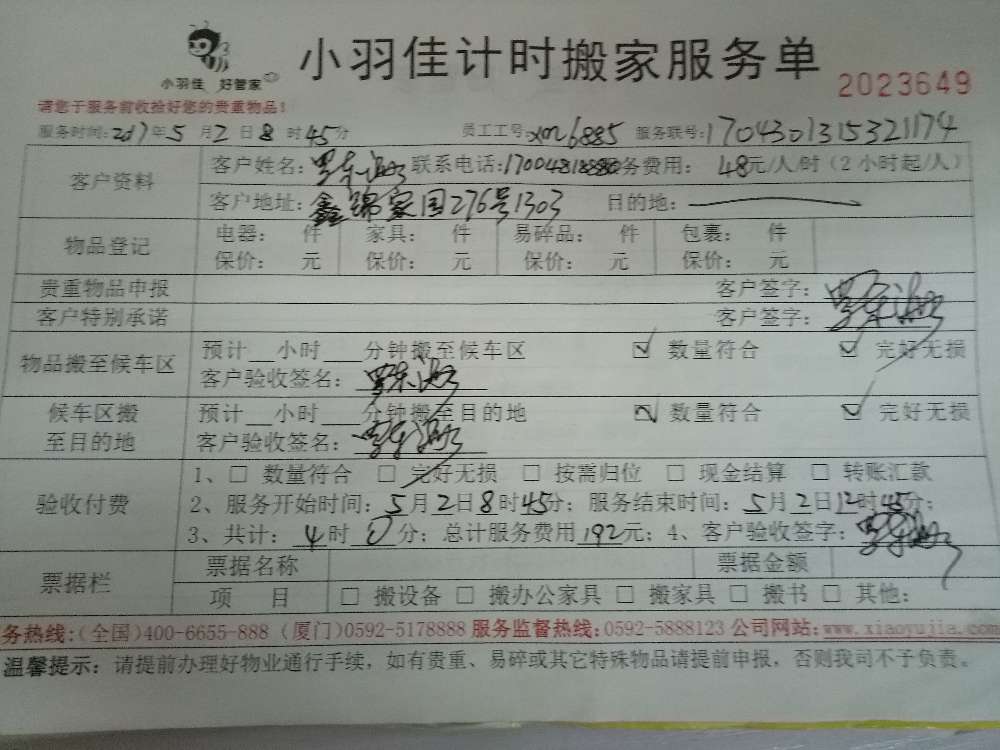 小羽佳 好管家
小羽佳计时搬家服务单
2023649
请您于服务前收捡好您的贵重物品！
服务时间：2017年5月2日8时45分 员工工号：xm6885 服务联号：1704301315321174
客户资料
客户姓名： 联系电话： 务费用：48元/人/时（2小时起/人）
客户地址：鑫锦家园276号1303 目的地：
物品登记
电器： 件 家具： 件 易碎品： 件 包裹： 件
保价： 元 保价： 元 保价： 元 保价： 元
贵重物品申报 客户签字：
客户特别承诺 客户签字：
物品搬至候车区
预计__小时___分钟搬至候车区 ☑ 数量符合 ☑ 完好无损
客户验收签名：
候车区搬至目的地
预计__小时___分钟搬至目的地 ☑ 数量符合 ☑ 完好无损
客户验收签名：
验收付费
1、□ 数量符合 □ 完好无损 □ 按需归位 □ 现金结算 □ 转账汇款
2、服务开始时间：5月2日8时45分；服务结束时间：5月2日12时45分；
3、共计：4时0分；总计服务费用192元；4、客户验收签字：
票据栏
票据名称 票据金额
项 目 □ 搬设备 □ 搬办公家具 □ 搬家具 □ 搬书 □ 其他：
务热线：(全国)400-6655-888 (厦门)0592-5178888 服务监督热线：0592-5888123 公司网站：www.xiaoyujia.com
温馨提示：请提前办理好物业通行手续，如有贵重、易碎或其它特殊物品请提前申报，否则我司不予负责。